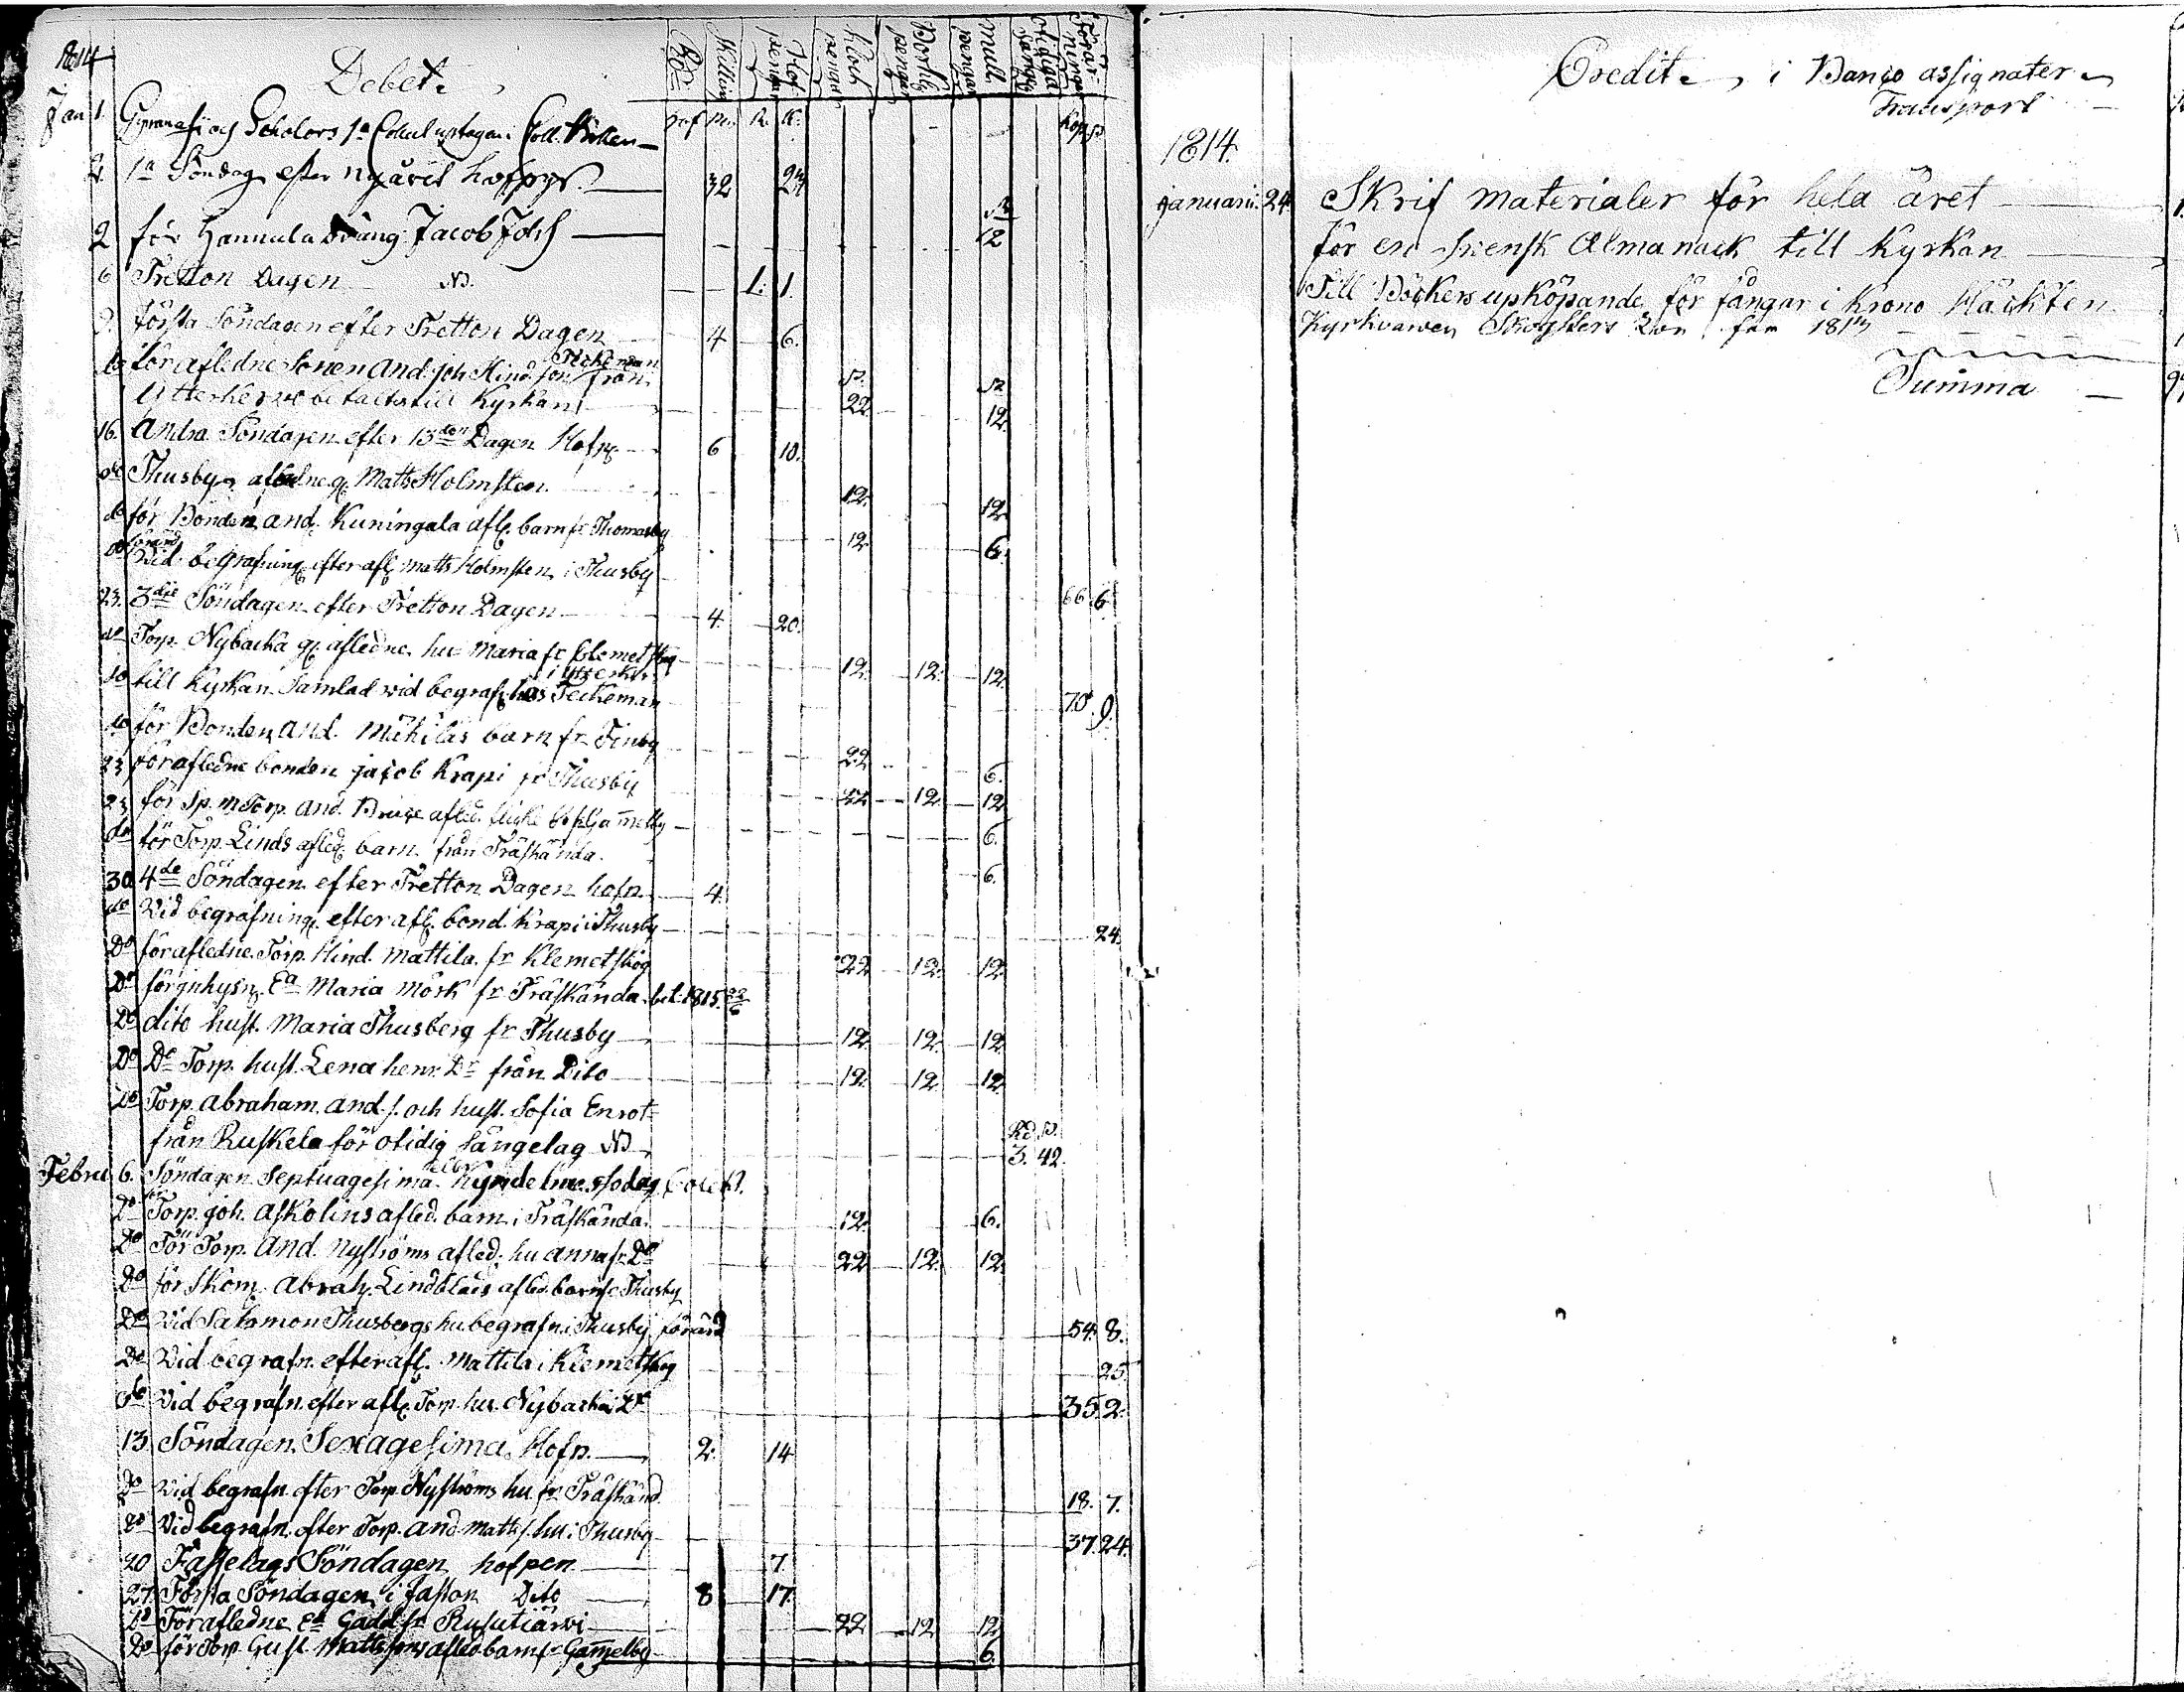 1814
Debet.
Håf pengar
Klock pengar
Bårtägs pengar
mull pengar
Jan 1. Gymnasii och Scholors 1a Collect uptagen.
2. 1a Söndag efter nyåret hofpgr. 32 23
2 för Hannula dräng Jacob Joh 12
6 Tretton Dagen NB. 1: 1.
9. första Söndagen efter Tretton Dagen 4 6.
för afledne Sonen And. Joh. Hind.son från Teckeman
Utterkerwe betalts till Kyrkan 22 12.
16. Andra Söndagen efter 13ton Dagen Hofp. 6 10.
do Thusby afledne g. Matts Holmsten 12. 12.
do för Bonden And. Kuningala afl. barn fr. Thomasby 12. 6.
do Wid begrafning efter afl. Matts Holmsten i Thusby 66 6.
23. 3die Söndagen efter Tretton Dagen 4. 20.
do Torp. Nybacka g. afledne hu Maria fr Clemetskog 12. 12. 12.
do till Kyrkan Samlad wid begraf. hos Teckeman 70. 9.
do för Bonden And. Mikilas barn fr. Finby 22 6.
23 för afledne bonden Jacob Krapi fr Thusby 22 12. 12.
23 för Sp. m Torp. And. afled. flicka Gammelby 6.
do för Torp. Linds afled. barn från Träskända. 6.
30. 4de Söndagen efter Tretton Dagen hofp. 4.
do Vid begrafning efter afl. bond. Krapi i Thusby 24.
Do för afledne Torp. Hind. Mattila fr Klemetskog 22 12. 12.
Do för inhysn. Ea Maria Mörk fr Träskända bet. 1815. 22/6
Do dito hust. Maria Thusberg fr Thusby 12. 12. 12.
Do Do Torp. hust. Lena henr. Dr från Dito 12. 12. 12.
Do Torp. Abraham And.s. och hust. Sofia Enrot
från Ruskela för otidig sängelag NB 3. 42.
Febru 6. Söndagen Septuagesima eller Kyndelmessodag Colect.
Do för Torp. Joh. Askolins afled. barn i Träskända. 12. 6.
Do För Torp. And. Nyströms afled. hu anna fr. Do 22 12. 12.
Do för Skom. Abrah. Lindblads afled. barn fr Thusby
Do Vid Salomon Thusbergs hu begrafn. i Thusby förärd 54. 8.
Do Vid begrafn. efter afl. Mattila i Klemetskog 25
do Vid begrafn. efter afl. Torp. hu. Nybacka i Do 35. 2.
13 Söndagen Sexagesima. Hofp. 2. 14
Do Vid begrafn. efter Torp. Nyströms hu. fr. Träskänd. 18. 7.
Do Vid begrafn. efter Torp. And. Matts s. hu i Thusby 37. 24.
20 Fastelags Söndagen hofpen 7
27. Första Söndagen i fastan Dito 8 17.
Do För afledne Ea Gadd fr Rusutiärwi 22 12 12
Do för Torp. Gust. Mattssons afled. barn fr Gammelby 6.
Credit, i Banco assignater
Transport
1814.
Januarii. 24. Skrif materialer för hela året
för en svensk Almanack till Kyrkan
Till Böckers upköpande för fångar i Krono Häckten
Summa